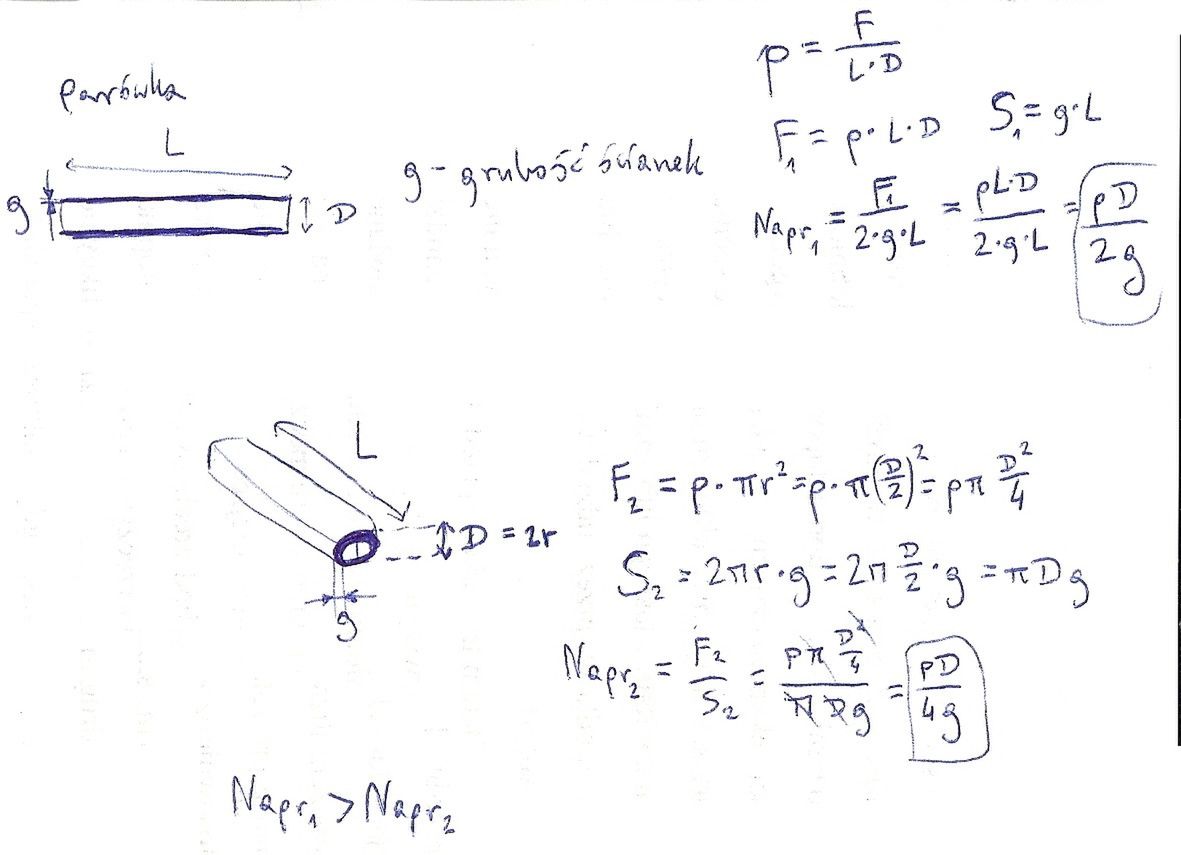 parówka
L
g
D
g - grubość ścianek
p = F / L·D
F₁ = p · L · D
S₁ = g · L
Napr₁ = F₁ / 2·g·L = pL·D / 2·g·L = pD / 2g
L
D = 2r
g
F₂ = p · πr² = p · π(D/2)² = pπ D²/4
S₂ = 2πr · g = 2π D/2 · g = πDg
Napr₂ = F₂ / S₂ = pπ D²/4 / πDg = pD / 4g
Napr₁ > Napr₂